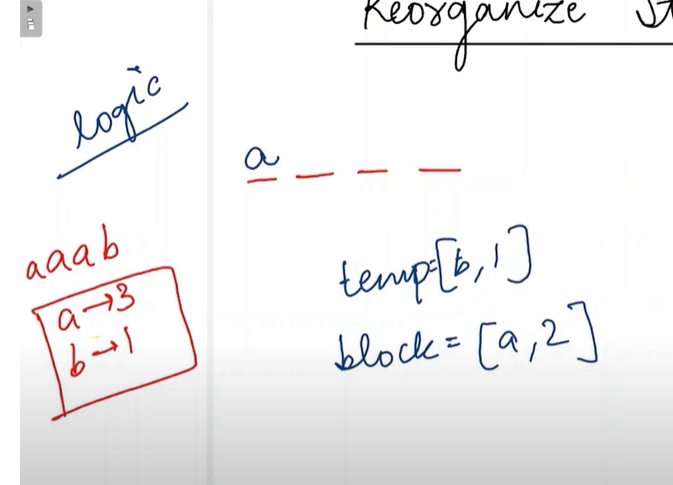 Reorganize
logic
a
aaab
a→3
b→1
temp=[b,1]
block=[a,2]